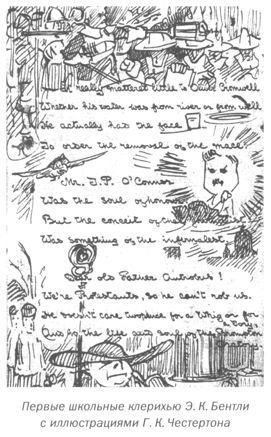 It really mattered little to Oliver Cromwell
Whether his water was from river or from well
He actually had the face
To order the removal of the mace.
Mr. T.P. O'Connor
Was the soul of honour
But the conceit of the
Was something of the infernalest.
Dear old Father
We're Protestants, so he can't rob us.
He doesn't care twopence for a Whig or for
a Tory,
And is the life and soul of the Brompton
Oratory
Первые школьные клерихью Э. К. Бентли
с иллюстрациями Г. К. Честертона